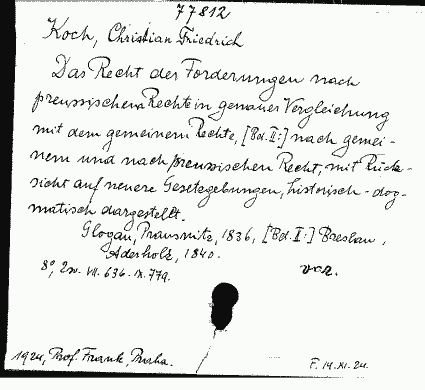 77812
Koch, Christian Friedrich
Das Recht der Forderungen nach
preussischem Rechte in genauer Vergleichung
mit dem gemeinem Rechte, [Bd. II:] nach gemei-
nem und nach preussischen Recht, mit Rück-
sicht auf neuere Gesetzgebungen, historisch-dog-
matisch dargestellt.
Glogau, Prausnitz, 1836, [Bd. II:] Breslau,
Aderholz, 1840.
8°, 2 sv. VII. 636. IX. 779.
vaz.
1924, Prof. Frank, Praha.
F. 14. XI. 24.